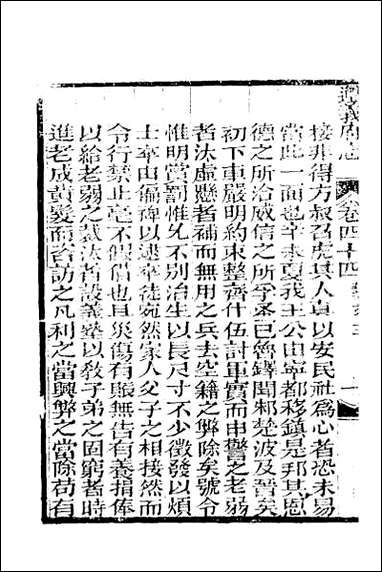 遵義府志　卷四十四　藝文三　一
接非得方叔召虎其人眞以安民社爲心者恐未易
當此一面也辛未夏我王公由寧都移鎮是邦其恩
德之所洽威信之所孚葢已魯鐸聞邾楚波及晉矣
初下車嚴明約束整齊什伍討軍實而申警之老弱
者汰虛懸者補而無用之兵去空籍之弊除矣號令
惟明賞罰惟允不別治生以長尺寸不少徵發以煩
士卒由偏裨以逮卒徒宛然家人父子之相接然而
令行禁止毫不假借也且災傷有賑無告有養捐俸
以給老弱之裁汰者設義塾以敎子弟之固窮者時
進老成黃髮而咨訪之凡利之當興弊之當除苟有